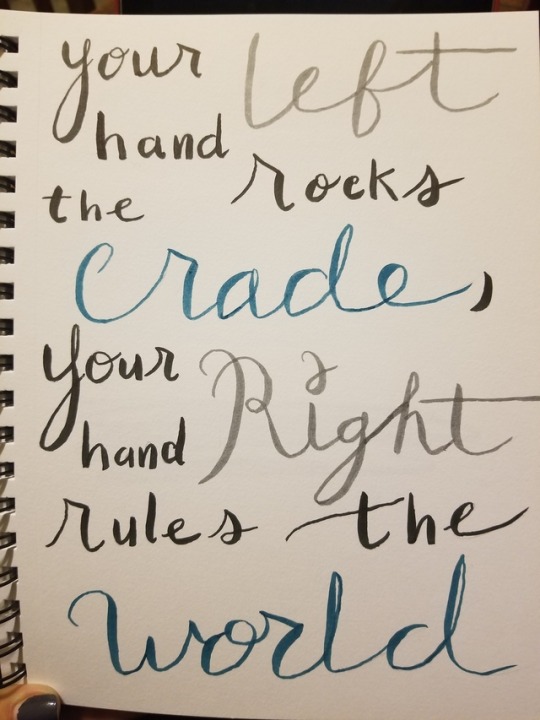 your left
hand rocks
the
Crade,
your Right
hand
rules the
World